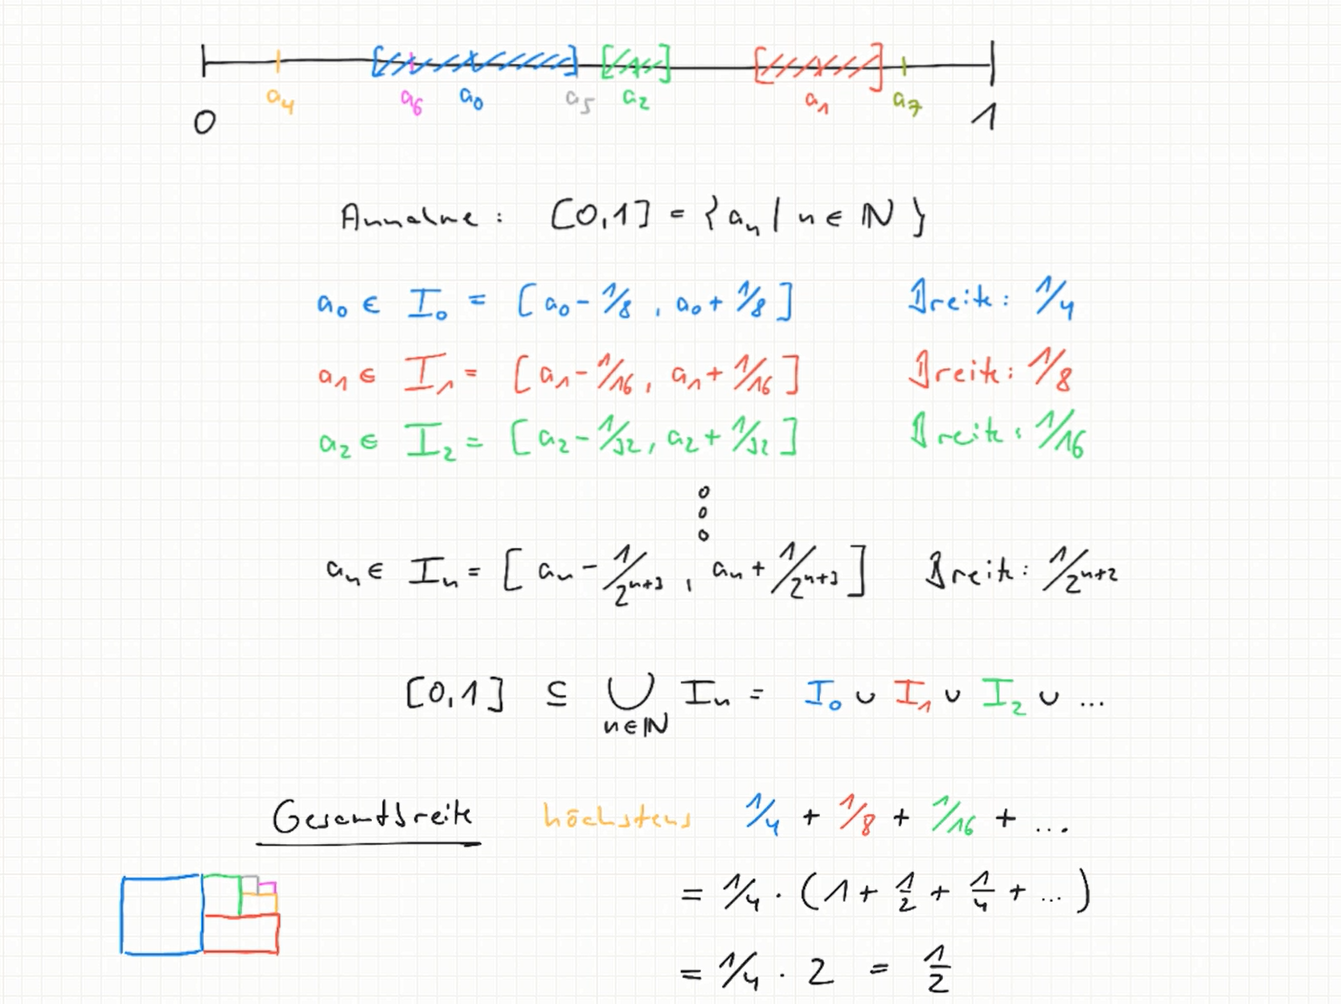 a₄ a₆ a₀ a₅ a₂ a₁ a₇
0 1
Annahme: [0,1] = { aₙ | n ∈ ℕ }
a₀ ∈ I₀ = [a₀ - 1/8, a₀ + 1/8] Breite: 1/4
a₁ ∈ I₁ = [a₁ - 1/16, a₁ + 1/16] Breite: 1/8
a₂ ∈ I₂ = [a₂ - 1/32, a₂ + 1/32] Breite: 1/16
aₙ ∈ Iₙ = [aₙ - 1/2ⁿ⁺³, aₙ + 1/2ⁿ⁺³] Breite: 1/2ⁿ⁺²
[0,1] ⊆ ⋃ Iₙ = I₀ ∪ I₁ ∪ I₂ ∪ ...
n∈ℕ
Gesamtbreite höchstens 1/4 + 1/8 + 1/16 + ...
= 1/4 · (1 + 1/2 + 1/4 + ...)
= 1/4 · 2 = 1/2